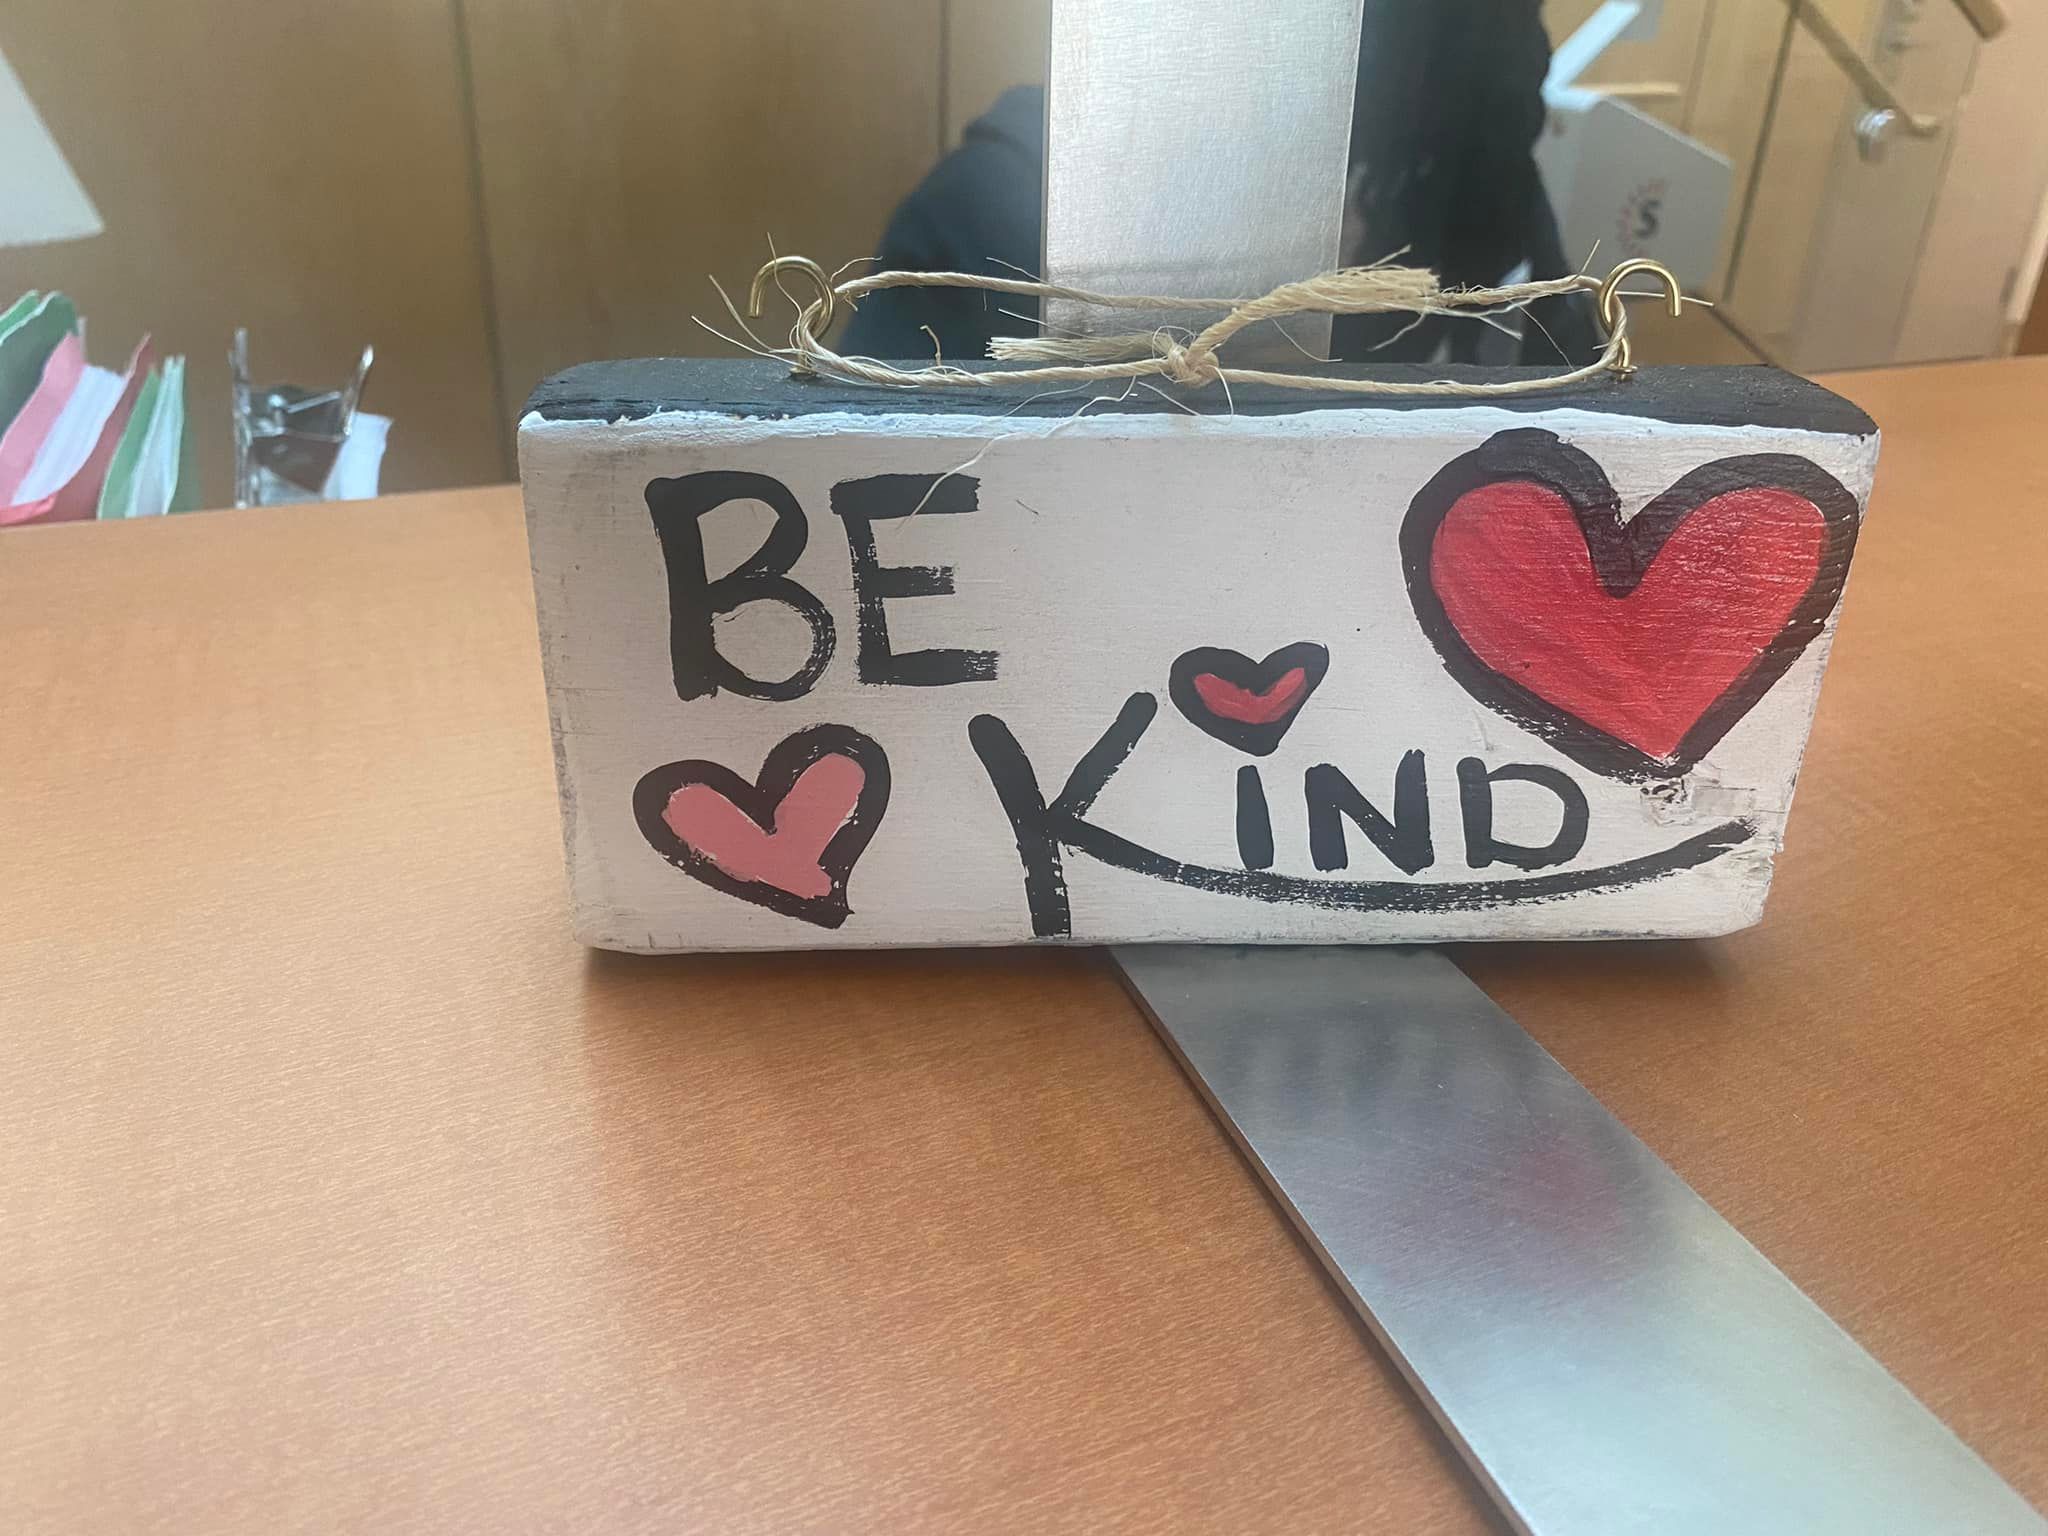 BE
KiND
S